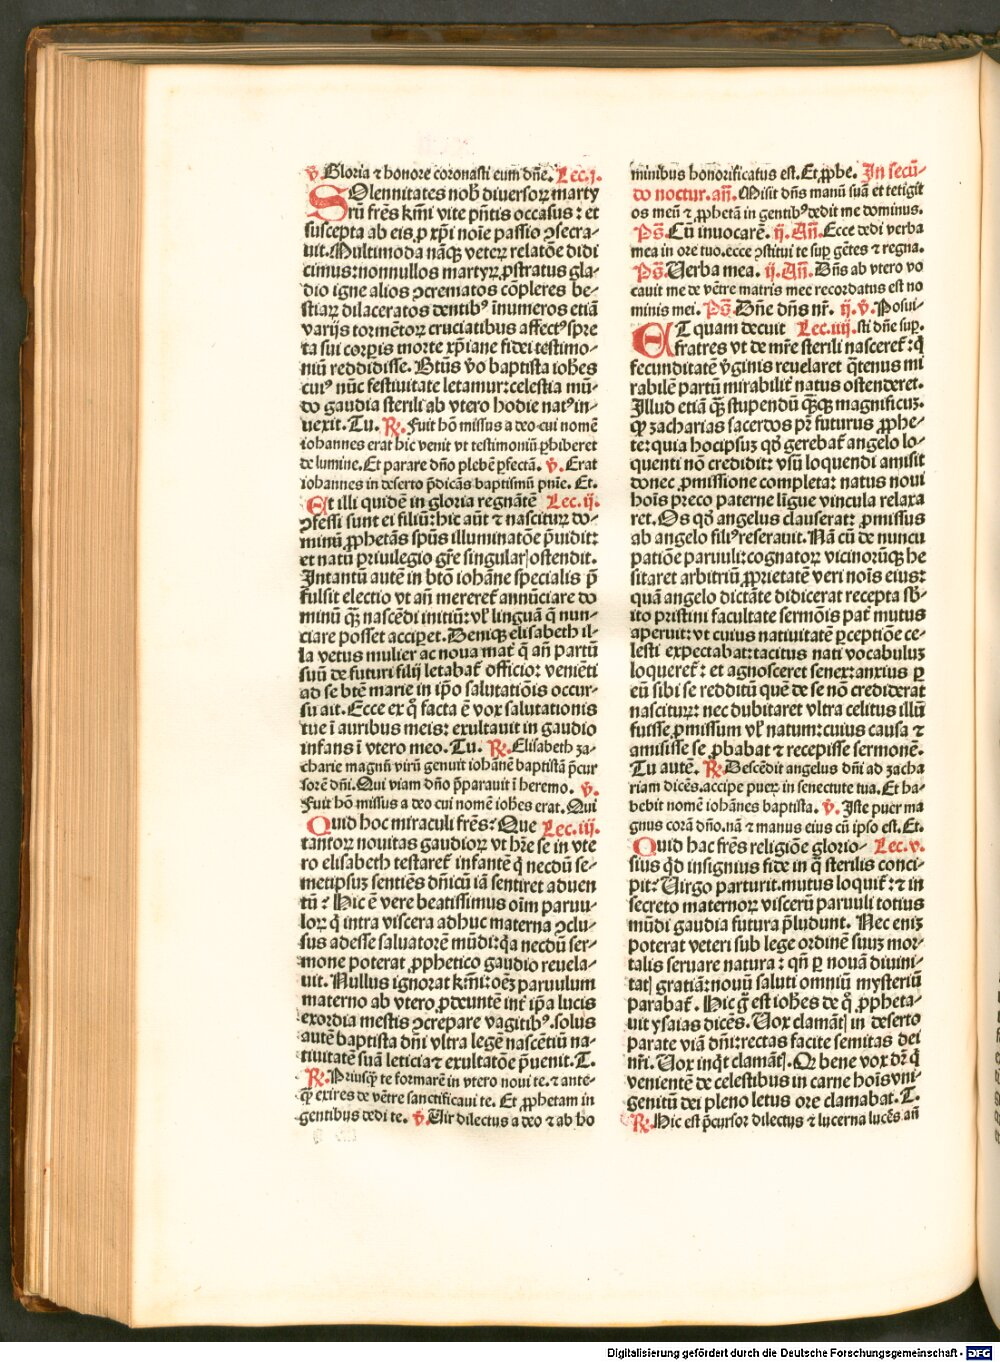 v̄. Gloria ⁊ honore coronasti eum dn̄e. Lec.j.
SOlennitates nob̄ diuersoꝝ marty
rū fr̄es kr̄mi vite pn̄tis occasus: et
suscepta ab eis ꝓ xp̄i noīe passio ꝯsecra-
uit. Multimoda nāqꝫ veteꝝ relatōe didi
cimus: nonnullos martyꝝ ꝓstratus gla-
dio igne alios ꝯcrematos cōpleres be-
stiaꝝ dilaceratos dentibꝰ īnumeros etiā
varijs tormētoꝝ cruciatibus affectꝰ spre
ta sui corꝑis morte xp̄iane fidei testimo-
niū reddidisse. Btūs v̄o baptista ioh̄es
cuiꝰ nūc festiuitate letamur: celestia mū-
do gaudia sterili ab vtero hodie natꝰ in-
uexit. Tu. R̄. Fuit hō missus a deo cui nomē
iohannes erat hic venit vt testimoniū ꝑhiberet
de lumine. Et parare dn̄o plebē ꝑfectā. v̄. Erat
iohannes in deserto p̄dicās baptismū pnīe. Et.
Et illi quidē in gloria regnātē Lec.ij.
ꝯfessi sunt ei filiū: hic aūt ⁊ nascituꝝ do-
minū ꝓphetās sp̄us illuminatōe p̄uidit:
et natū pͥuilegio gr̄e singularꝭ ostendit.
Intantū autē in btō iohāne specialis p̄
fulsit electio vt an̄ mereret̄ annūciare do
minū qꝫ nascēdi initiū: vl̓ linguā q̄ nun-
ciare posset accipet. Deniqꝫ elisabeth il-
la vetus mulier ac noua mat̄ q̄ an̄ partū
suū de futuri filij letabat̄ officio: veniēti
ad se btē marie in ip̄o salutatiōis occur-
su ait. Ecce ex q̄ facta ē vox salutationis
tue ī auribus meis: exultauit in gaudio
infans ī vtero meo. Tu. R̄. Elisabeth za-
charie magnū virū genuit iohanē baptistā p̄cur
sorē dn̄i. Qui viam dn̄o p̄parauit ī heremo. v̄.
Fuit hō missus a deo cui nomē ioh̄es erat. Qui
QUid hoc miraculi fr̄es? Que Lec.iij.
tantoꝝ nouitas gaudioꝝ vt hr̄e se in vte
ro elisabeth testaret̄ infantē q̄ necdū se-
metipsuꝫ sentiēs dn̄icū iā sentiret aduen
tū? Hic ē vere beatissimus oīm paruu-
loꝝ q̄ intra viscera adhuc materna ꝯclu-
sus adesse saluatorē mūdi: qͥa necdū ser-
mone poterat ꝓphetico gaudio reuela-
uit. Nullus ignorat kr̄mi: oēꝫ paruulum
materno ab vtero ꝓdeuntē int̄ ip̄a lucis
exordia mestis ꝯcrepare vagitibꝰ. solus
autē baptista dn̄i vltra legē nascētiū na-
tiuitatē suā leticia ⁊ exultatōe p̄uenit. T.
R̄. Priusqꝫ te formarē in vtero noui te. ⁊ ante-
qꝫ exires de vētre sanctificaui te. Et ꝓphetam in
gentibus dedi te. v̄. Vir dilectus a deo ⁊ ab ho
minibus honorificatus est. Et ꝓphe. In secū-
do noctur. an̄. Misit dn̄s manū suā et tetigit
os meū ⁊ ꝓphetā in gentibꝰ dedit me dominus.
Ps̄. Cū inuocarē. ij. An̄. Ecce dedi verba
mea in ore tuo. ecce ꝯstitui te suꝑ gētes ⁊ regna.
Ps̄. Verba mea. ij. An̄. Dn̄s ab vtero vo
cauit me de vētre matris mee recordatus est no
minis mei. Ps̄. Dn̄e dn̄s nr̄. ij. v̄. Posui-
ET quam decuit Lec.iiij. sti dn̄e suꝑ.
fratres vt de mr̄e sterili nasceret̄: q̄
fecunditatē v̄ginis reuelaret qͣtenus mi
rabilē partū mirabilit̄ natus ostenderet.
Illud etiā qꝫ stupendū qꝫqꝫ magnificuꝫ.
qꝫ zacharias sacerdos pr̄ futurus ꝓphe-
te: quia hocipsuꝫ qd̄ gerebat̄ angelo lo-
quenti nō credidit: vsū loquendi amisit
donec ꝓmissione completa: natus noui
hoīs preco paterne līgue vincula relaxa
ret. Os qd̄ angelus clauserat: ꝓmissus
ab angelo filiꝰ reserauit. Nā cū de nuncu
patiōe paruuli: cognatoꝝ vicinorūqꝫ he
sitaret arbitriū ꝓprietatē veri noīs eius:
quā angelo dictāte didicerat recepta sb̄-
ito pristini facultate sermōis pat̄ mutus
aperuit: vt cuius natiuitatē ꝑceptiōe ce-
lesti expectabat: tacitus nati vocabuluꝫ
loqueret̄: et agnosceret senex: anxius ꝑ
eū sibi se redditū quē de se nō crediderat
nascituꝝ: nec dubitaret vltra celitus illū
fuisse ꝓmissum vl̓ natum: cuius causa ⁊
amisisse se ꝓbabat ⁊ recepisse sermonē.
Tu autē. R̄. Descēdit angelus dn̄i ad zacha
riam dicēs. accipe pueꝝ in senectute tua. Et ha-
bebit nomē iohānes baptista. v̄. Iste puer ma
gnus corā dn̄o. nā ⁊ manus eius cū ipso est. Et.
QUid hac fr̄es religiōe glorio- Lec.v.
sius qͥd insignius fide in q̄ sterilis conci-
pit? Virgo parturit. mutus loquit̄: ⁊ in
secreto maternoꝝ viscerū paruuli totius
mūdi gaudia futura p̄ludunt. Nec eniꝫ
poterat veteri sub lege ordinē suuꝫ mor-
talis seruare natura: qn̄ ꝑ nouā diuini-
tatꝭ gratiā: nouū saluti omniū mysteriū
parabat̄. Hic ḡ est ioh̄es de q̄ ꝓpheta-
uit ysaias dicēs. Vox clamātꝭ in deserto
parate viā dn̄i: rectas facite semitas dei
nr̄i. Vox inqͥt clamātꝭ. O bene vox dr̄ q̄
venientē de celestibus in carne hoīs vni-
genitū dei pleno letus ore clamabat. T.
R̄. Hic est p̄cursor dilectus ⁊ lucerna lucēs an̄
Digitalisierung gefördert durch die Deutsche Forschungsgemeinschaft - DFG